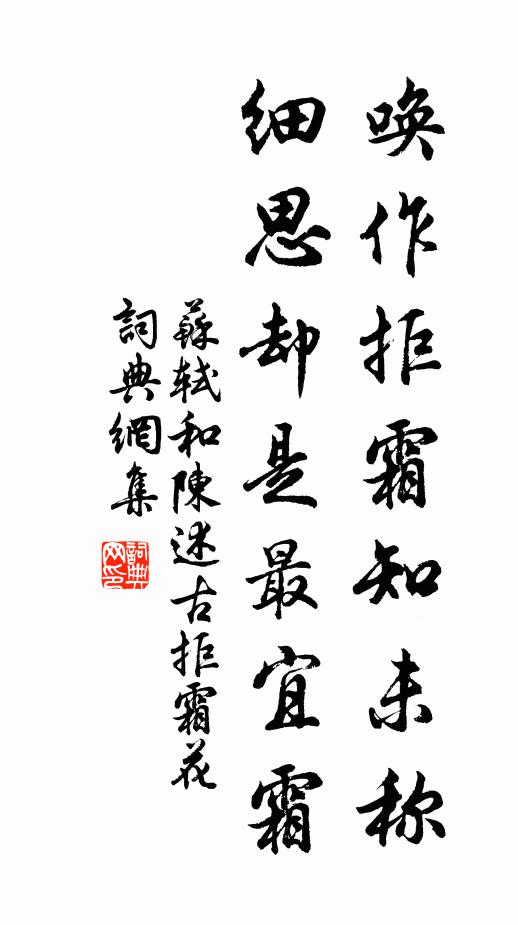 喚作拒霜知未称
細思却是最宜霜
蘇軾和陳述古拒霜花
詞典網集
詞典網印